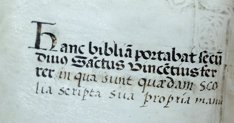 Hanc bibliā portabat secū
diuo Sāctus Uincētius fer
rer in qua sunt quædam sco
lia scripta sua propria manu